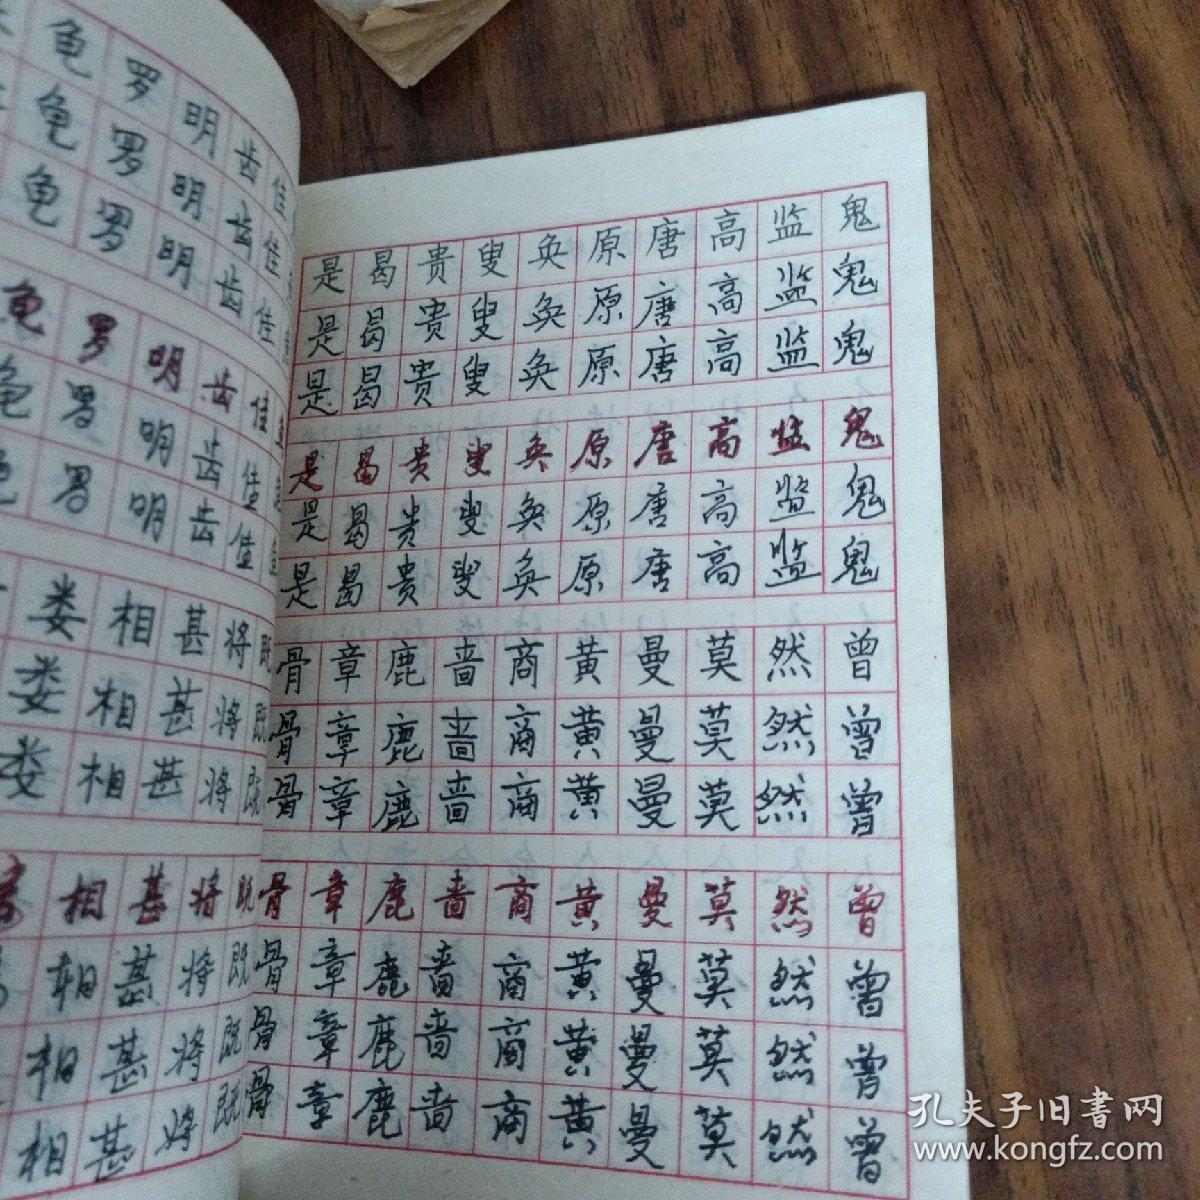 龟罗明齿佳
龟罗明齿佳
龟罗明齿佳
龟罗明齿佳
龟罗明齿佳
龟罗明齿佳
娄相甚将既
娄相甚将既
娄相甚将既
相甚将既
相甚将既
相甚将既
相甚将既
是曷贵叟奂原唐高监鬼
是曷贵叟奂原唐高监鬼
是曷贵叟奂原唐高监鬼
是曷贵叟奂原唐高监鬼
是曷贵叟奂原唐高监鬼
是曷贵叟奂原唐高监鬼
骨章鹿啬商黄曼莫然曾
骨章鹿啬商黄曼莫然曾
骨章鹿啬商黄曼莫然曾
骨章鹿啬商黄曼莫然曾
骨章鹿啬商黄曼莫然曾
骨章鹿啬商黄曼莫然曾
骨章鹿啬商黄曼莫然曾
孔夫子旧書网
www.kongfz.com